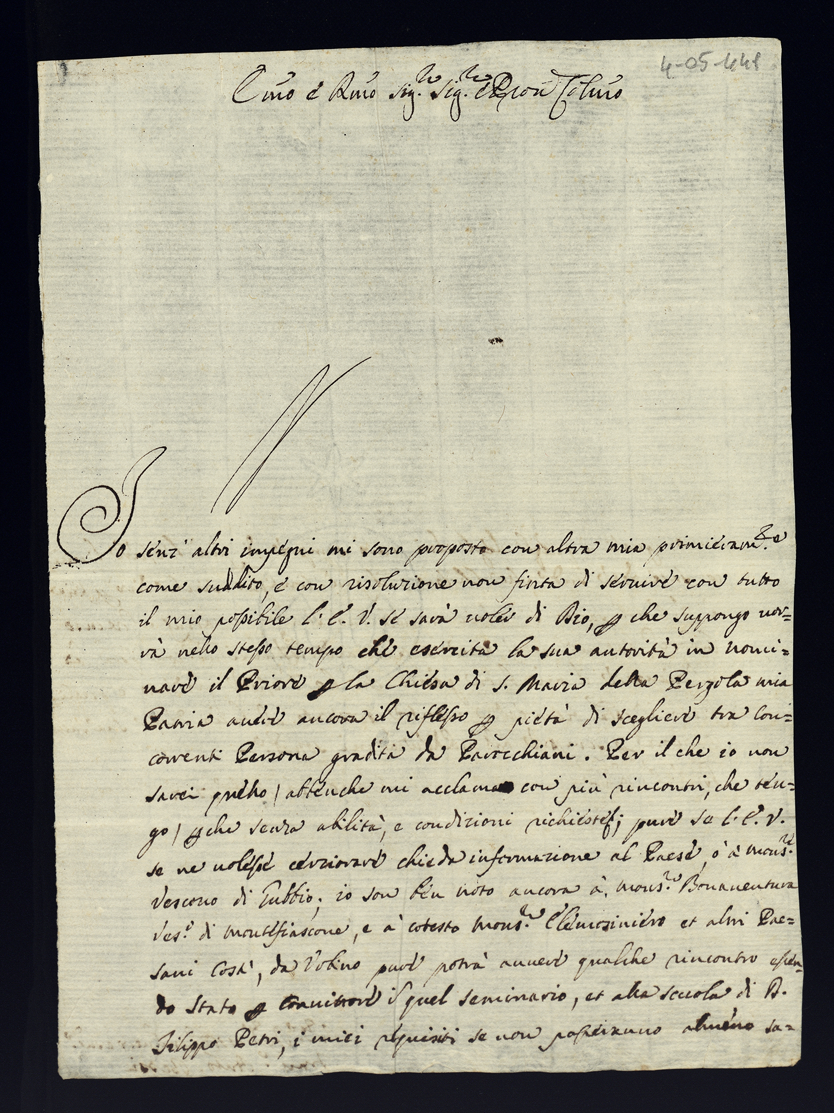 4-05-448
Emo e Rmo Sig.re Sig.re e Pron Colmo
Io senz' altri impegni mi sono proposto con altra mia primieram.te
come suddito, e con risoluzione non finta di servire con tutto
il mio possibile l'E. V. se sarà voler di Dio, che suppongo vor=
rà nello stesso tempo che esercita la sua autorità in nomi=
nare il Priore la Chiesa di S. Maria della Pergola mia
Patria avere ancora il riflesso pietà di scegliere tra con=
correnti Persona gradita da Parocchiani. Per il che io non
sarei quello / abbenche mi acclamano con più rincontri, che ten=
go / che senza abilità, e condizioni richieste; pure se l'E. V.
se ne volesse cerziorare chieda informazione al Paese, ò à Mons.re
Vescovo di Gubbio; io son ben noto ancora à Mons.re Bonaventura
Ves.o di Montefiascone, e à cotesto Mons.re Elemosiniero et altri Pae=
sani costà, da Urbino pure potrà avvere qualche rincontro essen=
do stato convittore quel seminario, et alla scuola di D.
Filippo Petri, i miei requisiti se non passeranno almeno sa=